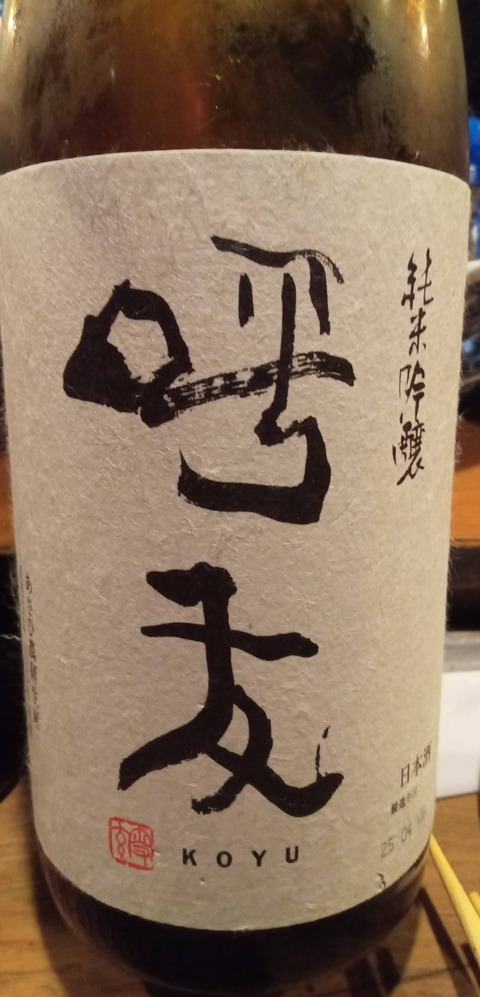 純米吟醸
呼友
KOYU
日本酒
製造年月
25.04